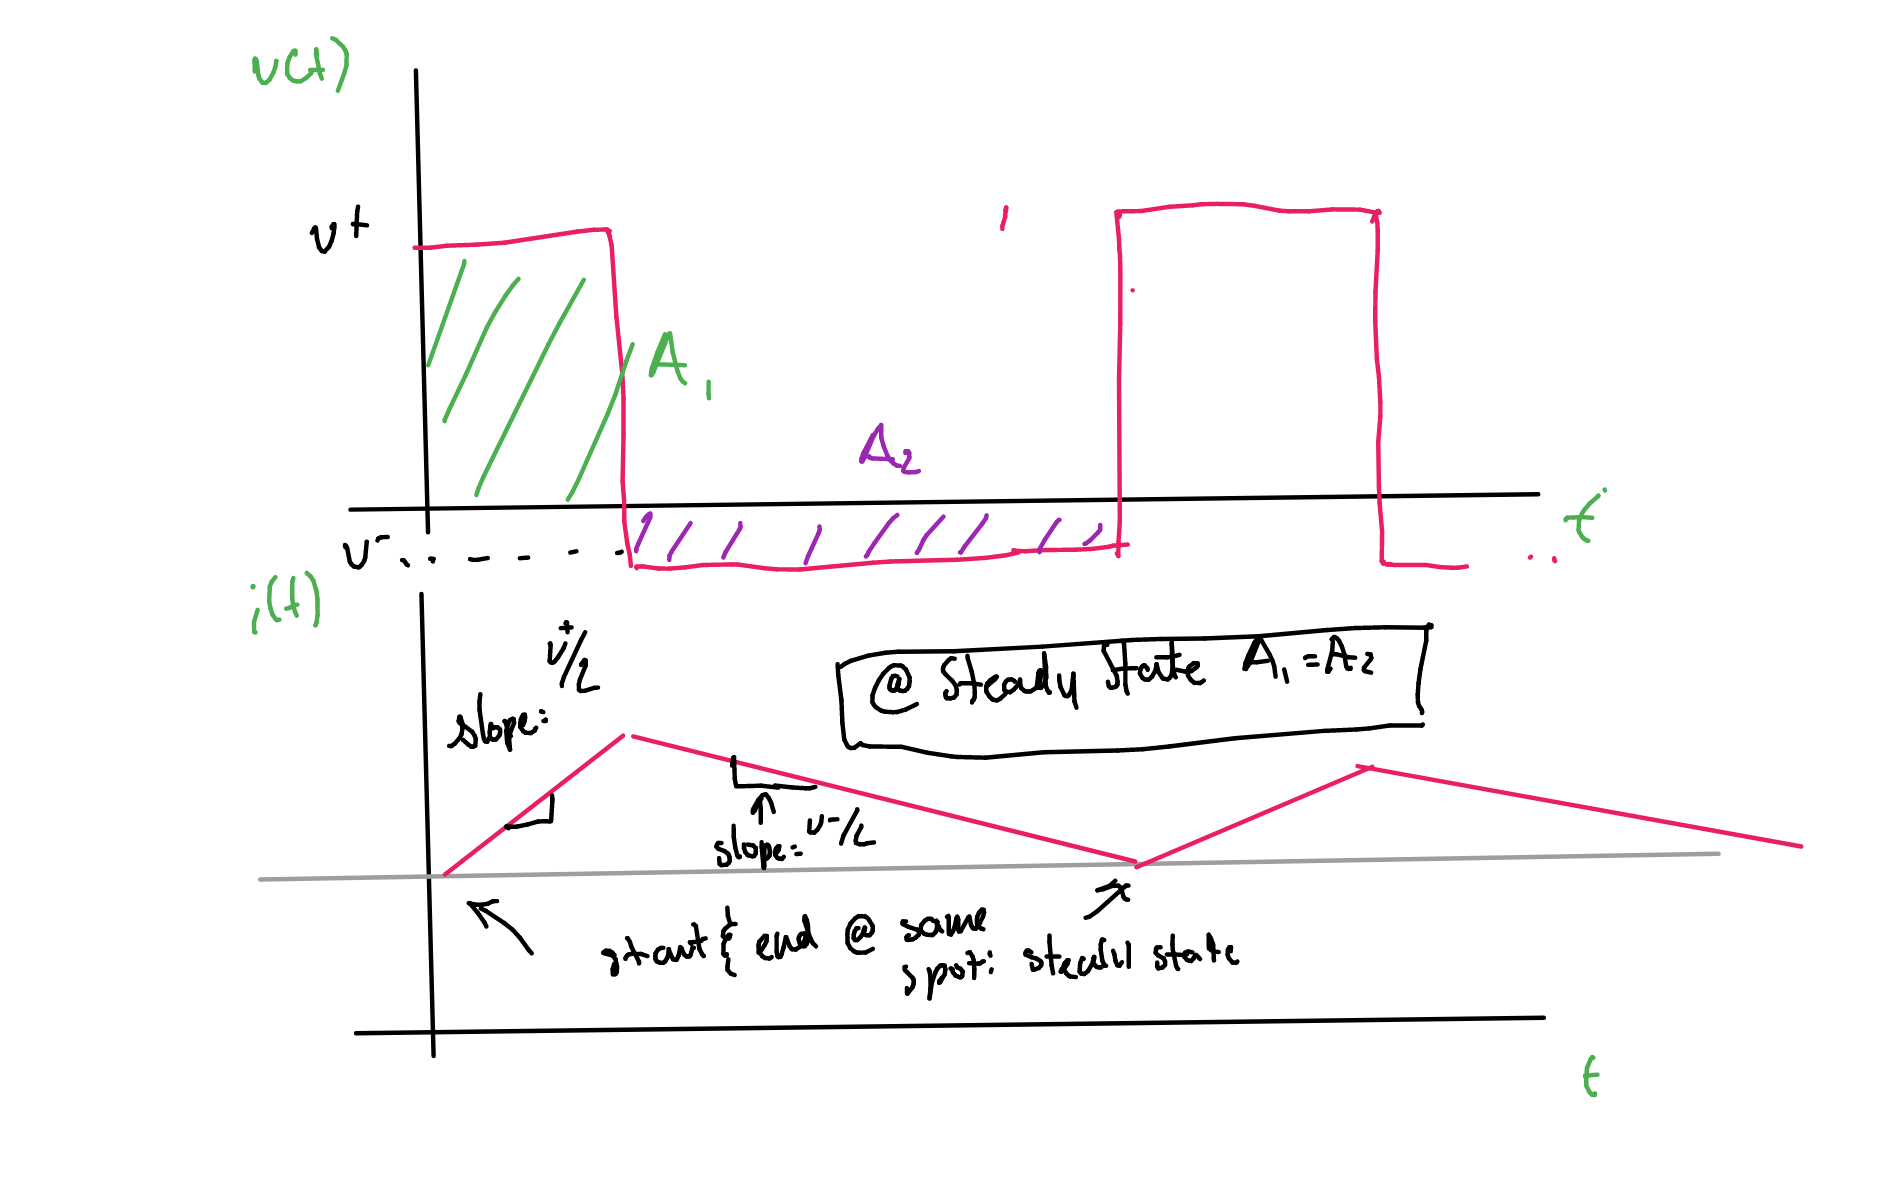 v(t)
v+
A1
A2
t
v-
i(t)
slope: v+/L
@ Steady State A1 = A2
slope: v-/L
start & end @ same
spot: steady state
t